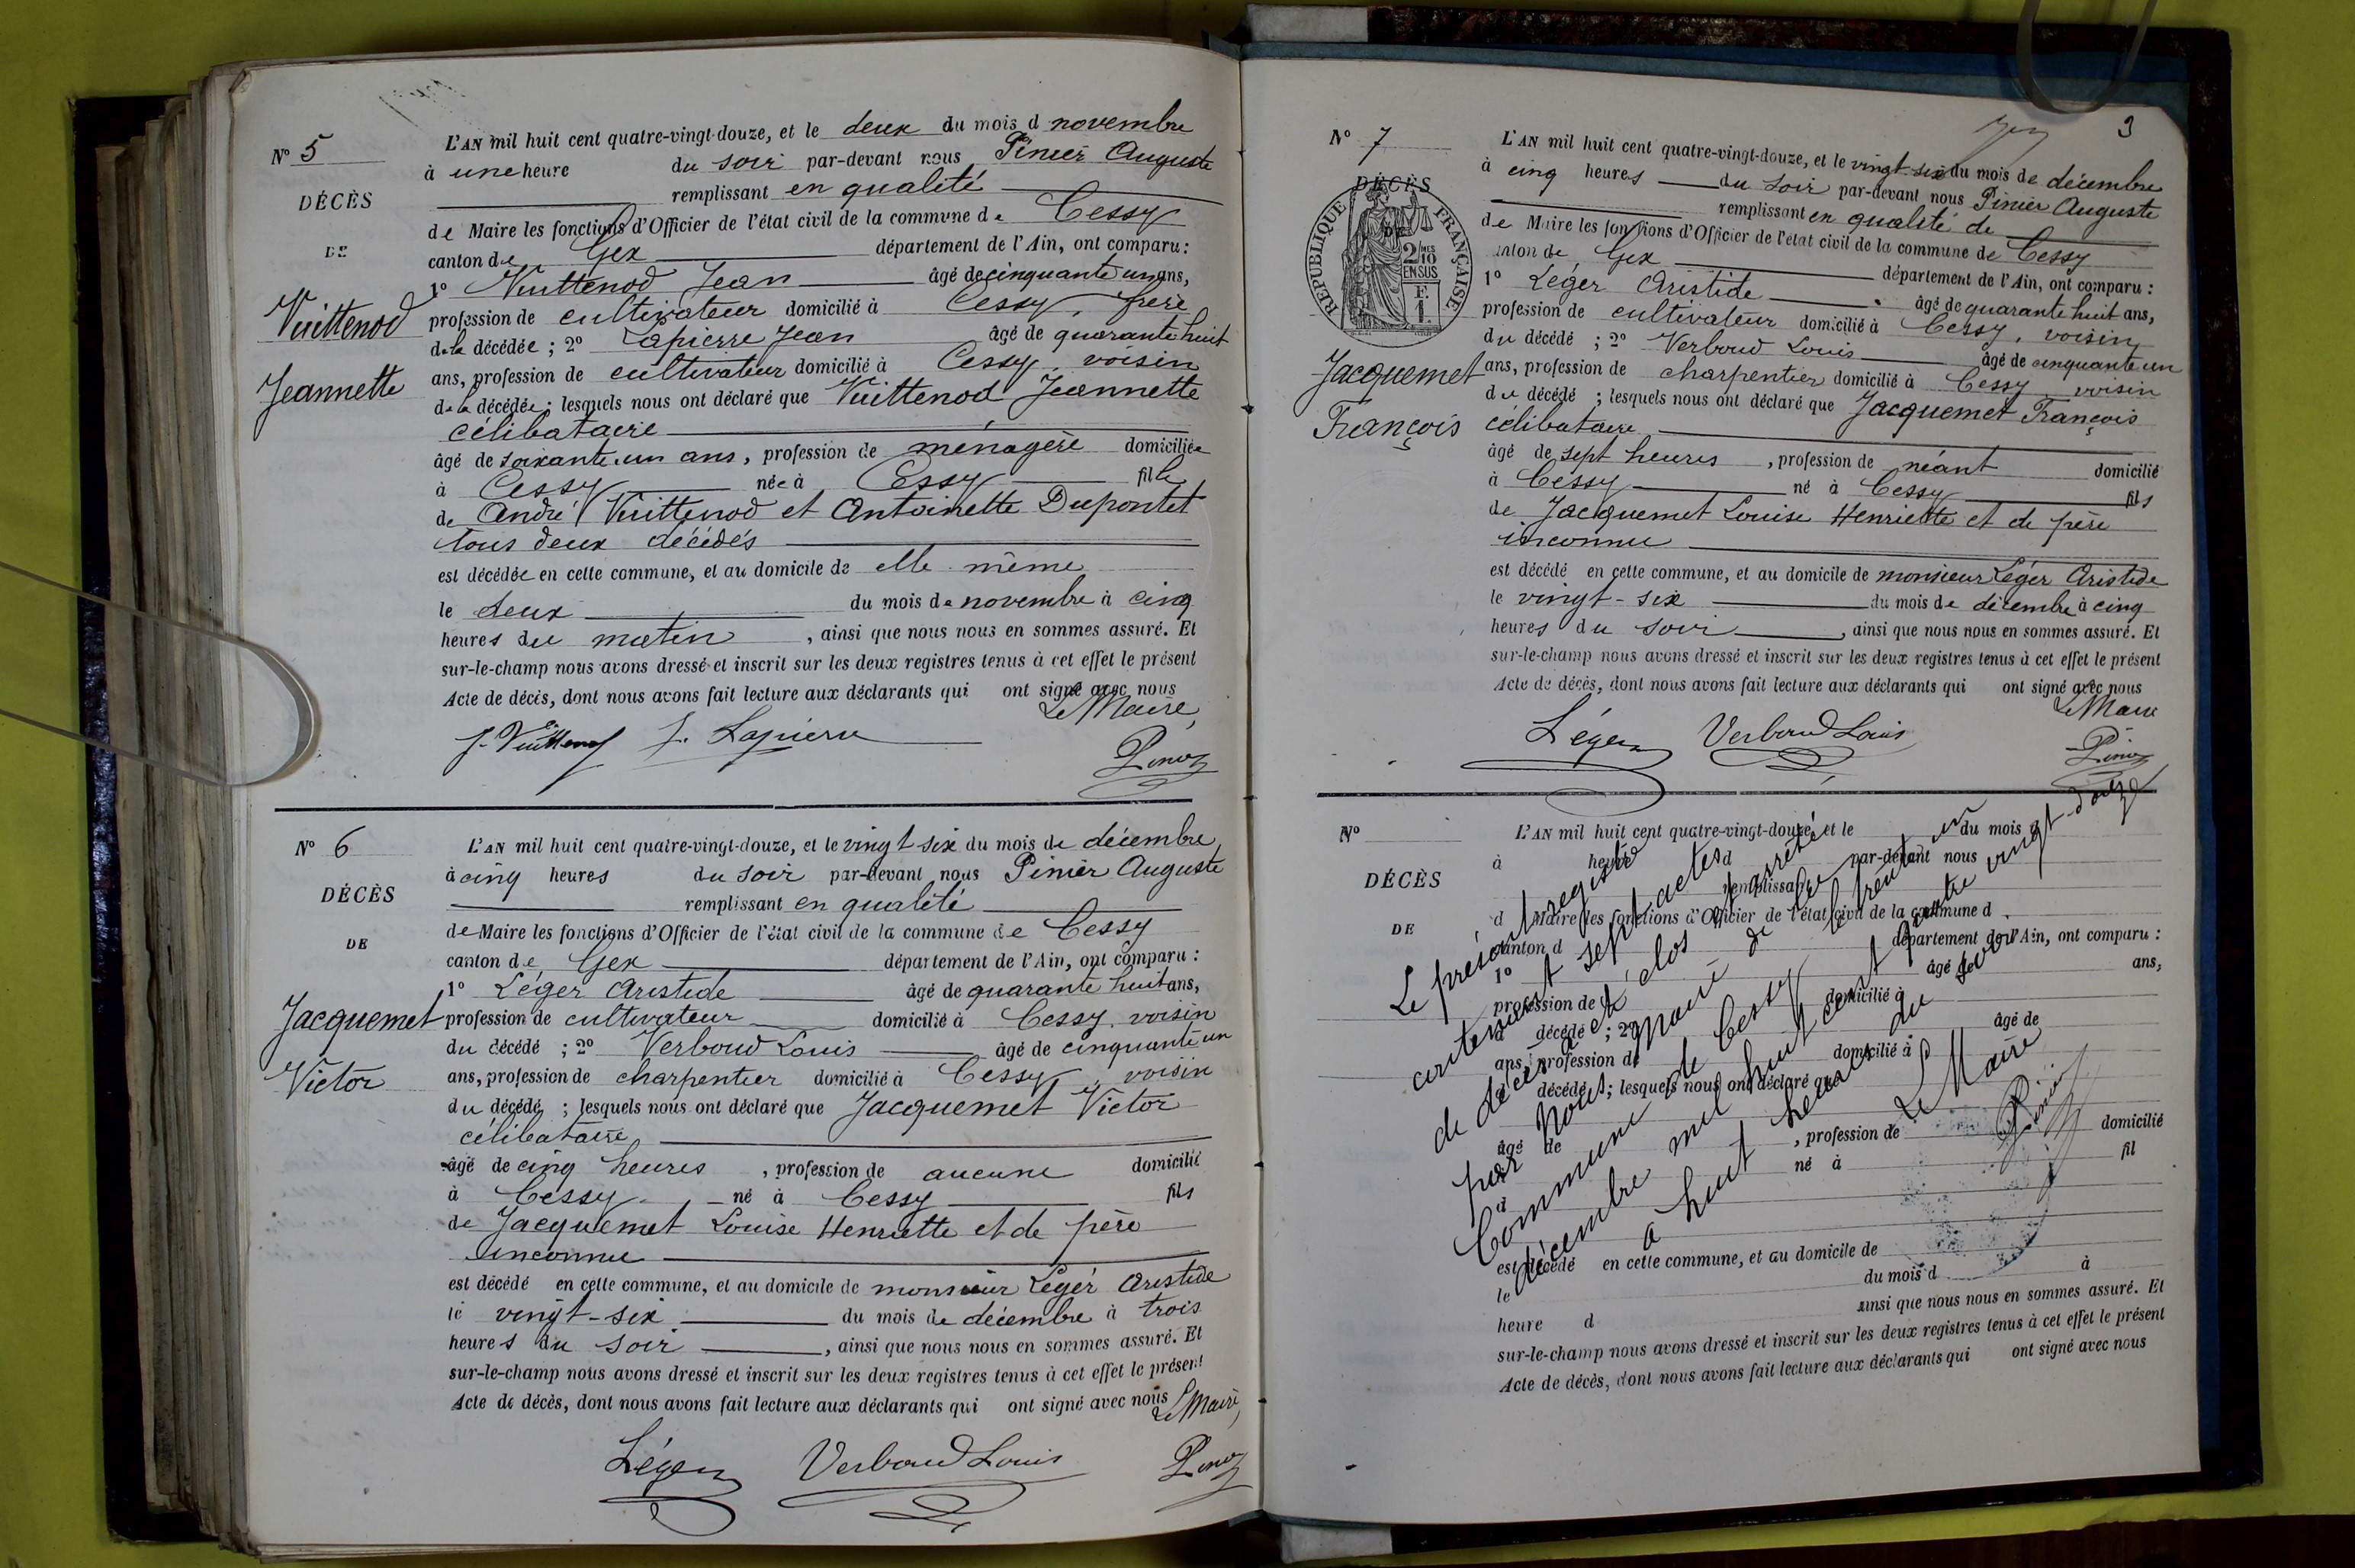 N° 5
DÉCÈS
DE
Vuittenod
Jeannette
L'AN mil huit cent quatre-vingt-douze, et le deux du mois d novembre
à une heure du soir par-devant nous Pinier Auguste
remplissant en qualité
de Maire les fonctions d'Officier de l'état civil de la commune de Cessy
canton de Gex département de l'Ain, ont comparu :
1° Vuittenod Jean âgé de cinquante un ans,
profession de cultivateur domicilié à Cessy, frère
de la décédée ; 2° Lapierre Jean âgé de quarante huit
ans, profession de cultivateur domicilié à Cessy, voisin
de la décédée ; lesquels nous ont déclaré que Vuittenod Jeannette
célibataire
âgé de soixante un ans, profession de ménagère domiciliée
à Cessy née à Cessy fille
de André Vuittenod et Antoinette Dupontet
tous deux décédés
est décédée en cette commune, et au domicile de elle-même
le deux du mois de novembre à cinq
heures du matin, ainsi que nous nous en sommes assuré. Et
sur-le-champ nous avons dressé et inscrit sur les deux registres tenus à cet effet le présent
Acte de décès, dont nous avons fait lecture aux déclarants qui ont signé avec nous
Le Maire,
J. Vuittenod J. Lapierre
Pinier
N° 6
DÉCÈS
DE
Jacquemet
Victor
L'AN mil huit cent quatre-vingt-douze, et le vingt six du mois de décembre
à cinq heures du soir par-devant nous Pinier Auguste
remplissant en qualité
de Maire les fonctions d'Officier de l'état civil de la commune de Cessy
canton de Gex département de l'Ain, ont comparu :
1° Léger Aristide âgé de quarante huit ans,
profession de cultivateur domicilié à Cessy, voisin
du décédé ; 2° Verboud Louis âgé de cinquante un
ans, profession de charpentier domicilié à Cessy, voisin
du décédé ; lesquels nous ont déclaré que Jacquemet Victor
célibataire
âgé de cinq heures, profession de aucune domicilié
à Cessy né à Cessy fils
de Jacquemet Louise Henriette et de père
inconnu
est décédé en cette commune, et au domicile de monsieur Léger Aristide
le vingt-six du mois de décembre à trois
heures du soir, ainsi que nous nous en sommes assuré. Et
sur-le-champ nous avons dressé et inscrit sur les deux registres tenus à cet effet le présent
Acte de décès, dont nous avons fait lecture aux déclarants qui ont signé avec nous
Le Maire,
Léger Verboud Louis Pinier
3
N° 7
DÉCÈS
DE
RÉPUBLIQUE FRANÇAISE
2/10 EN SUS
Jacquemet
François
L'AN mil huit cent quatre-vingt-douze, et le vingt-six du mois de décembre
à cinq heures du soir par-devant nous Pinier Auguste
remplissant en qualité de
de Maire les fonctions d'Officier de l'état civil de la commune de Cessy
canton de Gex département de l'Ain, ont comparu :
1° Léger Aristide âgé de quarante huit ans,
profession de cultivateur domicilié à Cessy, voisin
du décédé ; 2° Verboud Louis âgé de cinquante un
ans, profession de charpentier domicilié à Cessy voisin
du décédé ; lesquels nous ont déclaré que Jacquemet François
célibataire
âgé de sept heures, profession de néant domicilié
à Cessy né à Cessy fils
de Jacquemet Louise Henriette et de père
inconnu
est décédé en cette commune, et au domicile de monsieur Léger Aristide
le vingt-six du mois de décembre à cinq
heures du soir, ainsi que nous nous en sommes assuré. Et
sur-le-champ nous avons dressé et inscrit sur les deux registres tenus à cet effet le présent
Acte de décès, dont nous avons fait lecture aux déclarants qui ont signé avec nous
Le Maire
Léger Verboud Louis
Pinier
N°
DÉCÈS
DE
L'AN mil huit cent quatre-vingt-douze, et le du mois d
à heure d par-devant nous
remplissant
d Maire les fonctions d'Officier de l'état civil de la commune d
canton d département de l'Ain, ont comparu :
1° âgé de ans,
profession de domicilié à
décédé ; 2° âgé de
ans, profession de domicilié à
décédé ; lesquels nous ont déclaré que
âgé de , profession de domicilié
à né à fil
est décédé en cette commune, et au domicile de
le du mois d à
heure d ainsi que nous nous en sommes assuré. Et
sur-le-champ nous avons dressé et inscrit sur les deux registres tenus à cet effet le présent
Acte de décès, dont nous avons fait lecture aux déclarants qui ont signé avec nous
Le présent registre
contenant sept actes
de décès a été clos et arrêté
par Nous, Maire de la
Commune de Cessy le trente un
décembre mil huit cent quatre vingt-douze
à huit heures du soir
Le Maire
Pinier